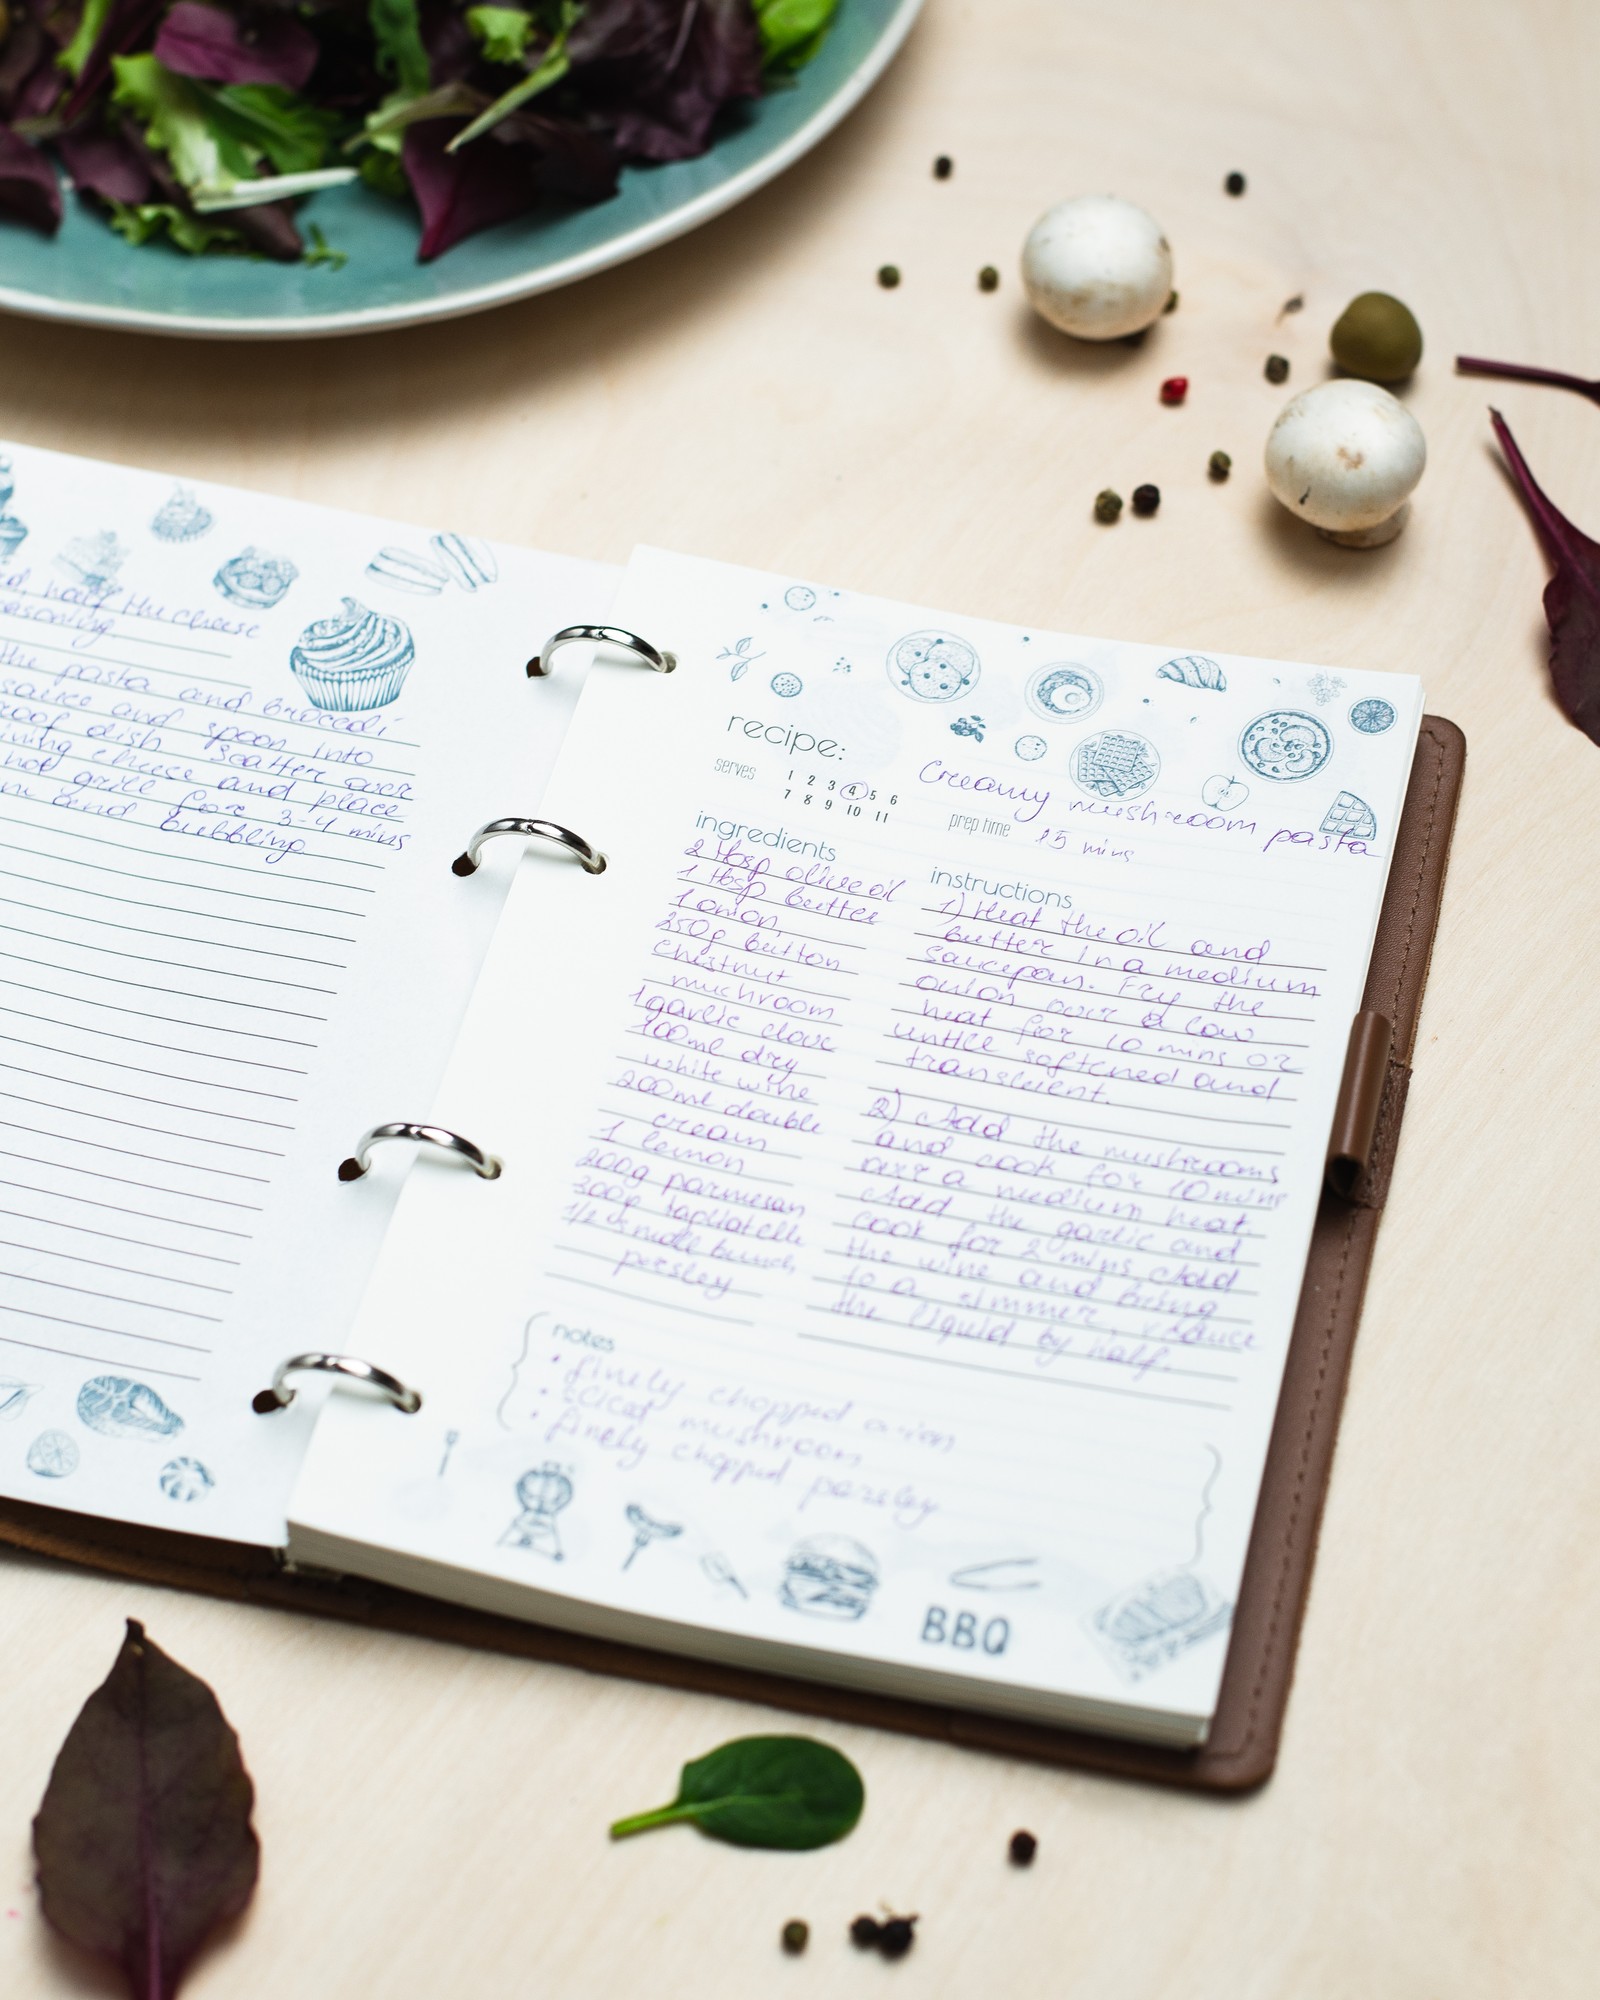 half the cheese
the pasta and broccoli
sauce and spoon into
dish Scatter over
cheese and place
grill for 3-4 mins
and bubbling.
recipe:
Creamy mushroom pasta
serves 1 2 3 4 5 6
7 8 9 10 11
prep time 15 mins
ingredients
2 tbsp olive oil
1 tbsp butter
1 onion,
250g button
chestnut
muchroom
1 garlic clove
100ml dry
white wine
200ml double
cream
1 lemon
200g parmesan
300g
1/2 bunch
persley
instructions
1) Heat the oil and
butter in a medium
saucepan. Fry the
onion over a low
heat for 10 mins or
softened and
2) Add the mushrooms
and cook for 10 mins
over a medium heat.
Add the garlic and
cook for 2 mins. Add
the wine and bring
to a simmer, reduce
the liquid by half.
notes
• finely chopped onion
• sliced mushroom
• finely chopped parsley
BBQ